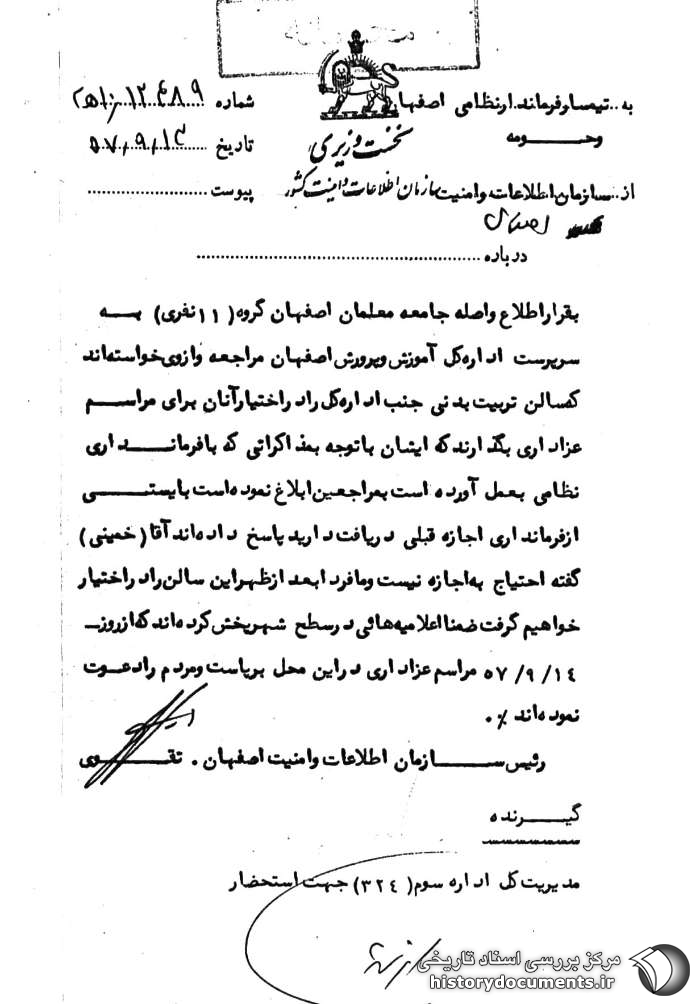 به..تیمسار فرماندار نظامی اصفهان
وحـــومه
شماره ۱۲۴۸۹/۱۰ هـ۲
تاریخ ۵۷،۹،۱۳
نخست وزیری
از..سازمان اطلاعات و امنیت سازمان اطلاعات و امنیت کشور
پیوست
درباره
بقرار اطلاع واصله جامعه معلمان اصفهان گروه (۱۱ نفری) بـــه
سرپرست اداره کل آموزش وپرورش اصفهان مراجعه وازوی خواسته اند
که سالن تربیت بدنی جنب اداره کل را در اختیار آنان برای مراسـم
عزاداری بگذارند که ایشان باتوجه بمذاکراتی که بافرمانـــداری
نظامی بعمل آورده است بمراجعین ابلاغ نموده است بایستــی
ازفرمانداری اجازه قبلی دریافت دارید پاسخ داده اند آقا (خمینی)
گفته احتیاج به اجازه نیست ومافردا بعد ازظهر این سالن را در اختیار
خواهیم گرفت ضمنا اعلامیه هائی در سطح شهر پخش کرده اند که از روز ـ
۱۴ /۹/ ۵۷ مراسم عزاداری در این محل برپاست و مردم را دعوت
نموده اند ٪۰
رئیس ســـازمان اطلاعات وامنیت اصفهان . تقــوی
گیـــرنده
مدیریت کل اداره سوم (۳۲۴) جهت استحضار
مرکز بررسی اسناد تاریخی
historydocuments.ir